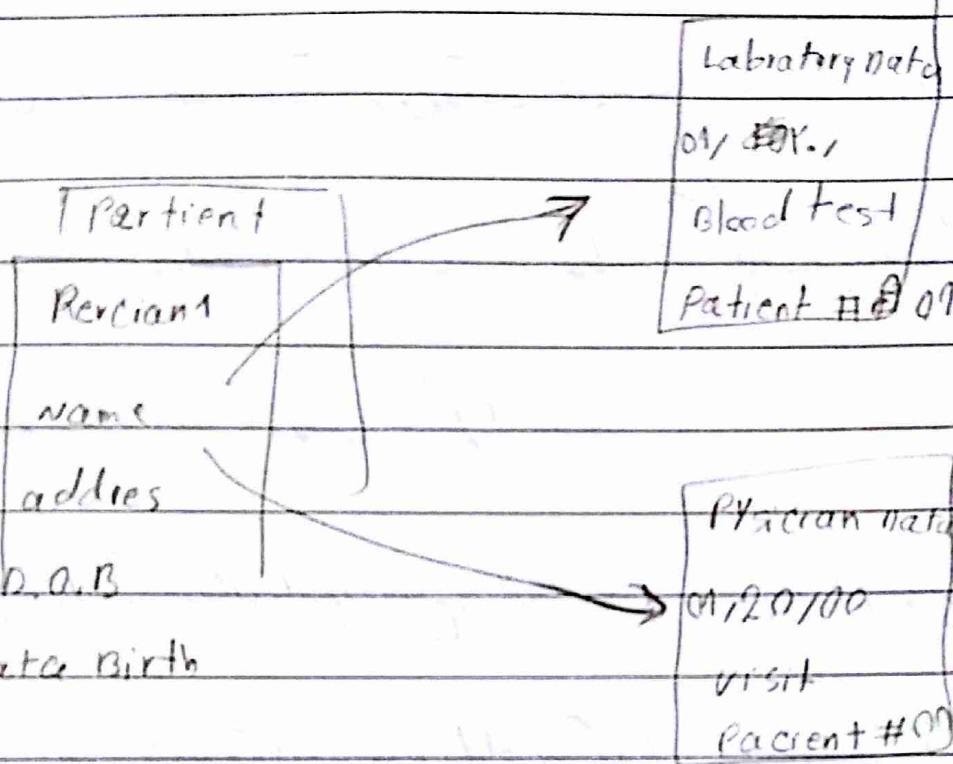 Partient
Rercian1
Name
addres
D.O.B
ata Birth
Labratory Data
01/
Blood test
Patient # 01
PYsician Data
01/20/00
visit
Pacient #01